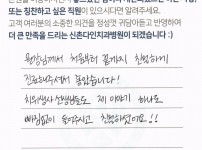 또는 칭찬하고 싶은 직원이 있으시다면 알려주세요.
고객 여러분의 소중한 의견을 정성껏 귀담아듣고 반영하여
더 큰 만족을 드리는 신촌다인치과병원이 되겠습니다 :)
원장님께서 처음부터 끝까지 친절하게
진료해주셔서 좋았습니다!
치위생사 선생님들도 제 이야기 하나도
빠짐없이 들어주시고 친절하셨어요!!